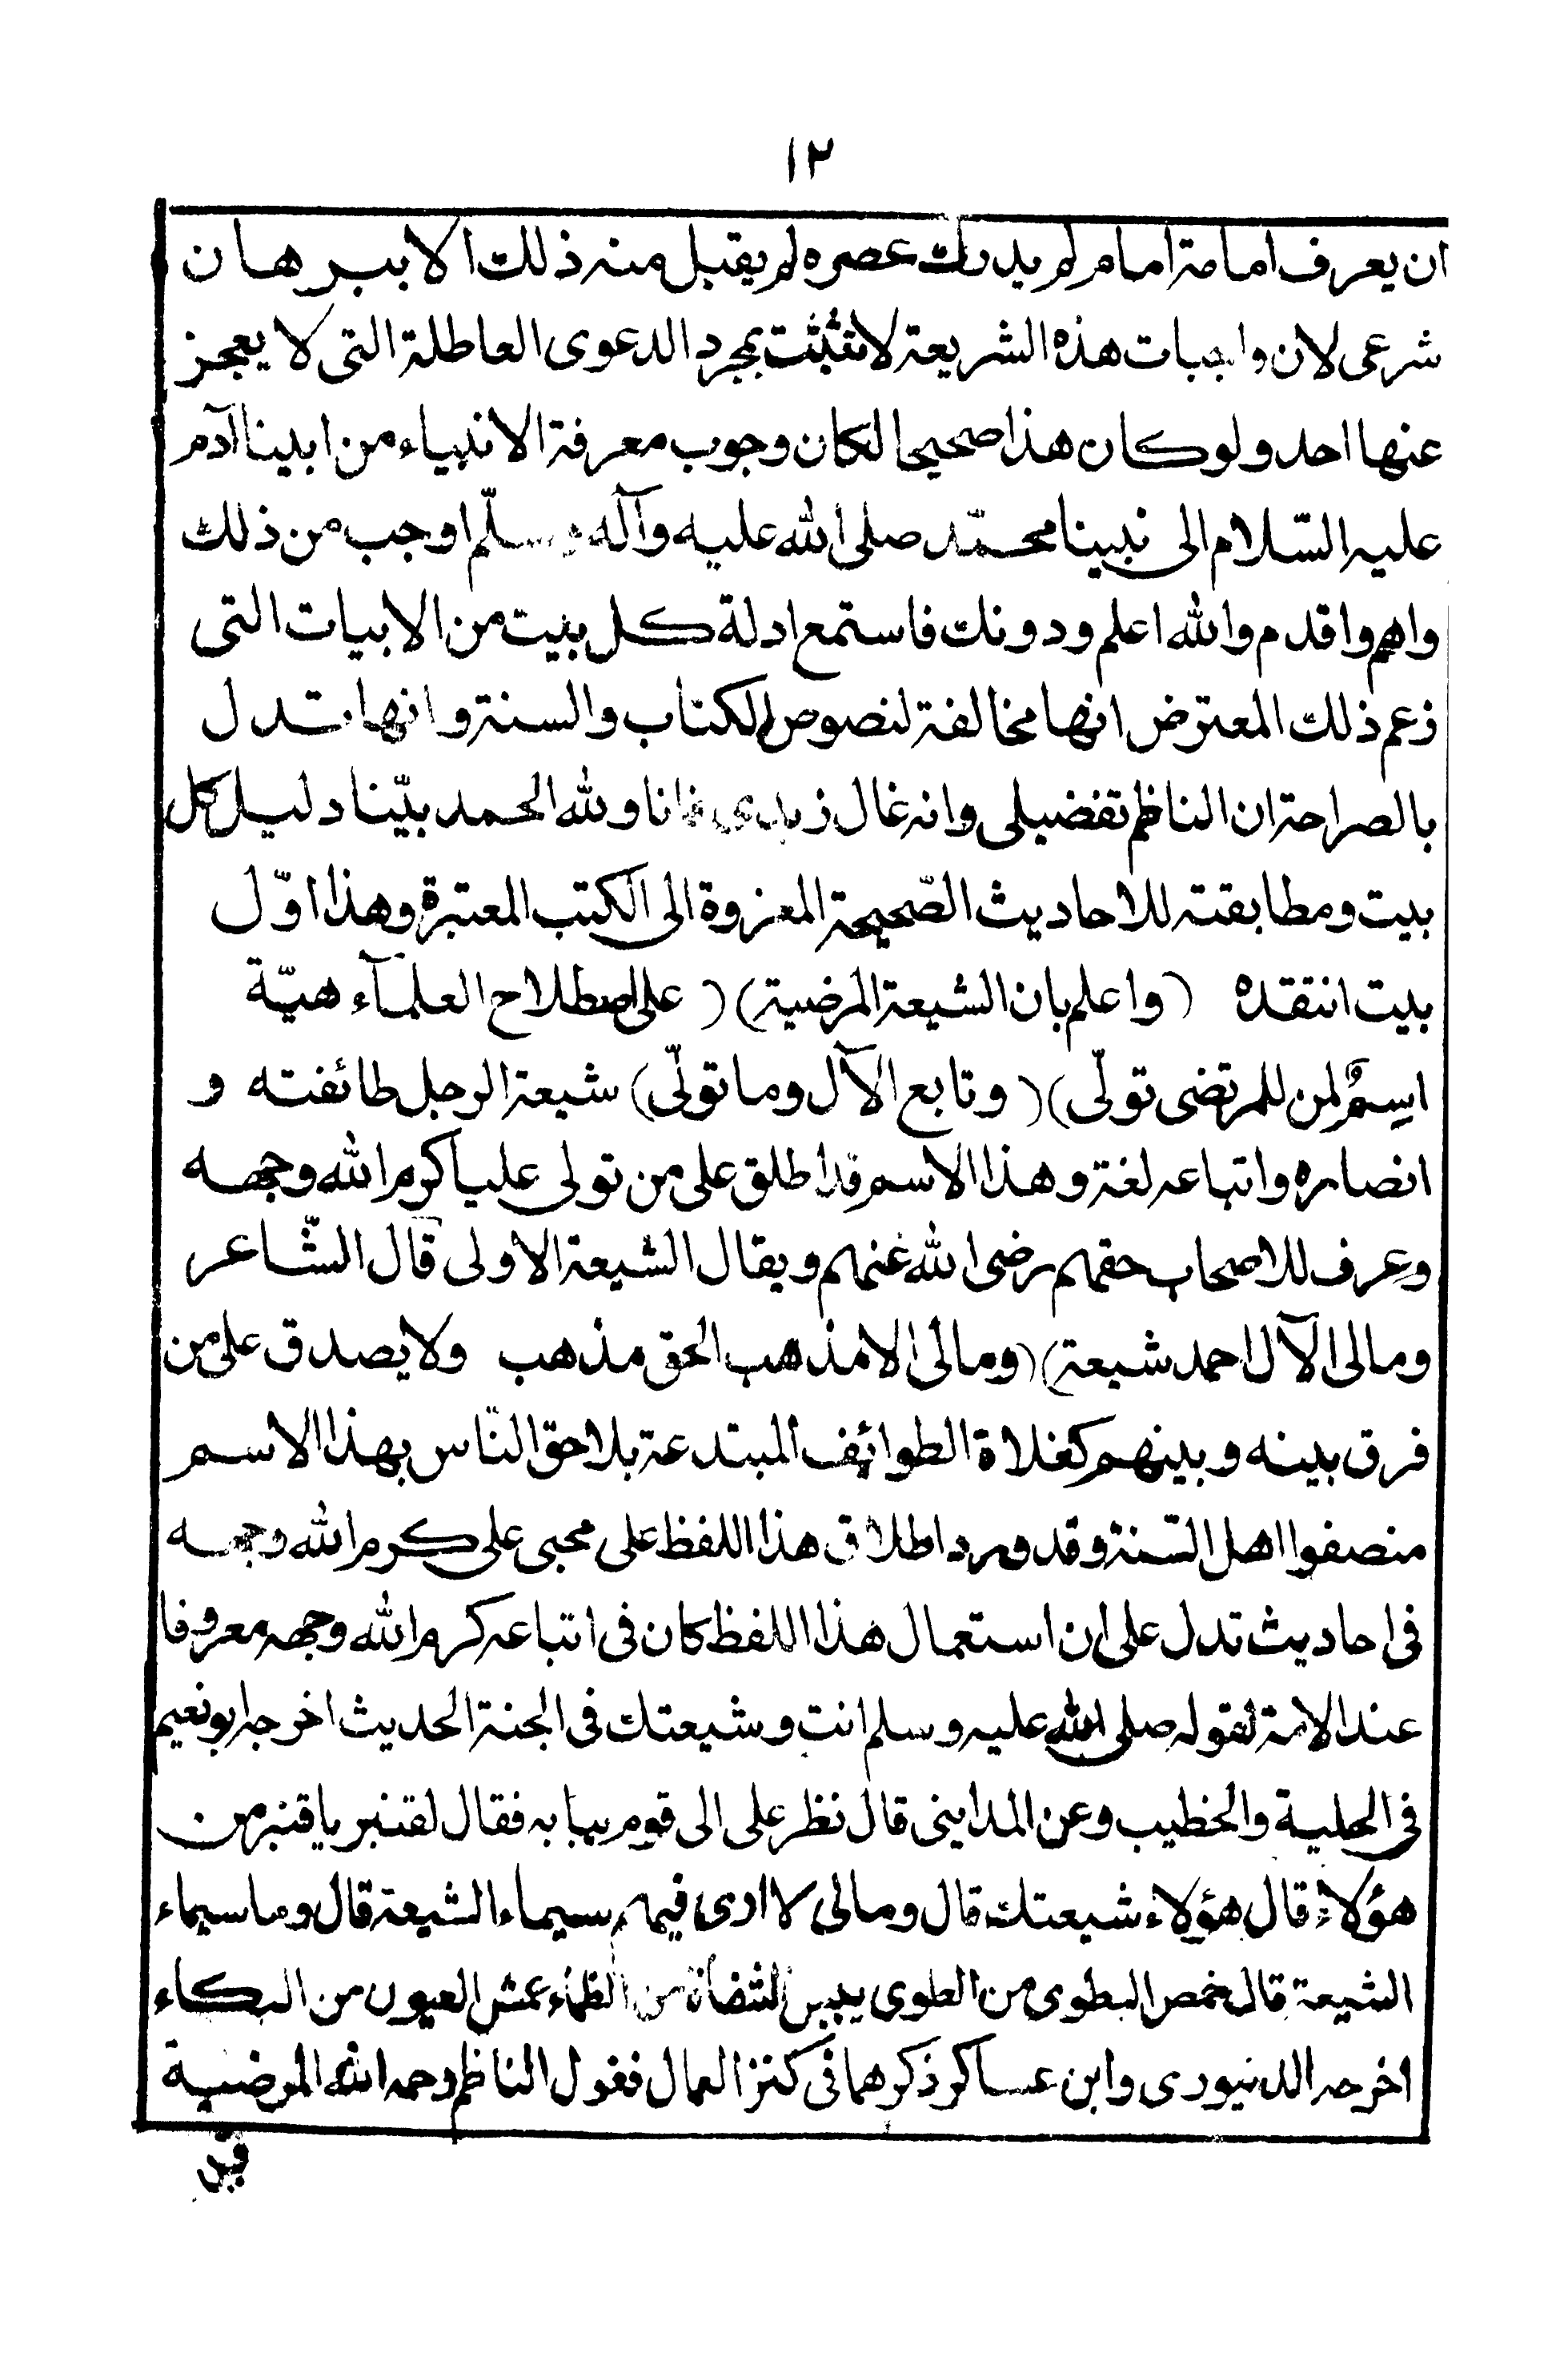 ١٢
ان يعرف امامة امام لم يدرك عصره لم يقبل منه ذلك الا ببرهان
شرعى لان واجبات هذه الشريعة لا تثبت بمجرد الدعوى العاطلة التى لا يعجز
عنها احد ولو كان هذا صحيحا لكان وجوب معرفة الانبياء من ابينا آدم
عليه السّلام الى نبينا محمّد صلى الله عليه وآله وسلّم اوجب من ذلك
واهم واقدم والله اعلم ودونك فاستمع ادلة كل بيت من الابيات التى
زعم ذلك المعترض انها مخالفة لنصوص الكتاب والسنة وانها تدل
بالصراحة ان الناظم تفضيلى وانه غال زيدى فانا ولله الحمد بيّنا دليل كل
بيت ومطابقته للاحاديث الصّحيحة المعزوة الى الكتب المعتبرة وهذا اوّل
بيت انتقده (واعلم بان الشيعة المرضية) (على اصطلاح العلمآء هيّة
اسمٌ لمن للمرتضى تولّى) (وتابع الآل وما تولّى) شيعة الرجل طائفته و
انصاره واتباعه لغة وهذا الاسم قد اطلق على من تولى علياً كرم الله وجهه
وعرف للاصحاب حقهم رضى الله عنهم ويقال الشيعة الاولى قال الشّاعر
ومالى الآل احمد شيعة) (ومالى الا مذهب الحق مذهب ولا يصدق على من
فرق بينه وبينهم كغلاة الطوائف المبتدعة بلاحق النّاس بهذا الاسم
منصفوا اهل السّنة وقد ورد اطلاق هذا اللفظ على محبى على كرم الله وجهه
فى احاديث تدل على ان استعمال هذا اللفظ كان فى اتباعه كرم الله وجهه معروفا
عند الامة لقوله صلى الله عليه وسلم انت وشيعتك فى الجنة الحديث اخرجه ابو نعيم
فى الحلية والخطيب وعن المداينى قال نظر على الى قوم ببابه فقال لقنبر يا قنبر من
هؤلاء قال هؤلاء شيعتك قال ومالى لا ارى فيهم سيماء الشيعة قال وما سيماء
الشيعة قال خمص البطوى من الطوى يبس الشفاة من الظماء عمش العيون من البكاء
اخرجه الدنيورى وابن عساكر ذكرهما فى كنز العمال فقول الناظم رحمه الله المرضية